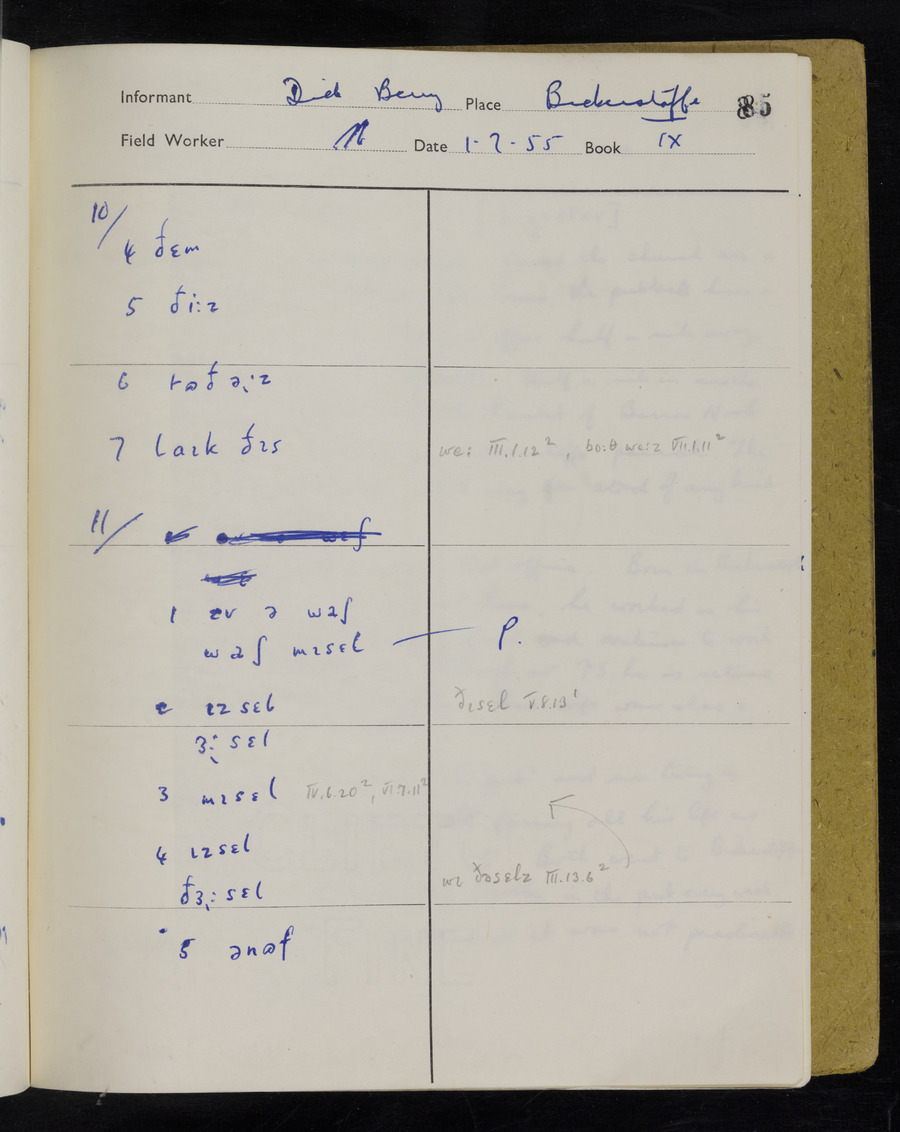 Informant Dick Berry Place Bickerstaffe 85
Field Worker Date 1-7-55 Book IX
10/
4 ðɛm
5 ði:z
6 ðə:z
7 laɪk ðɪs
we: III.1.12², bo:θ we:z VII.1.11²
11/
1 əv ə waʃ
waʃ mɪsɛl — p.
2 ɪzsɛl
ðɪsɛl V.8.13¹
ɜ:sɛl
3 mɪsɛl IV.6.20², VI.7.11²
4 ɪzsɛl
wɪ ðəsɛlz III.13.6²
ðɜ:sɛl
5 ənɷf